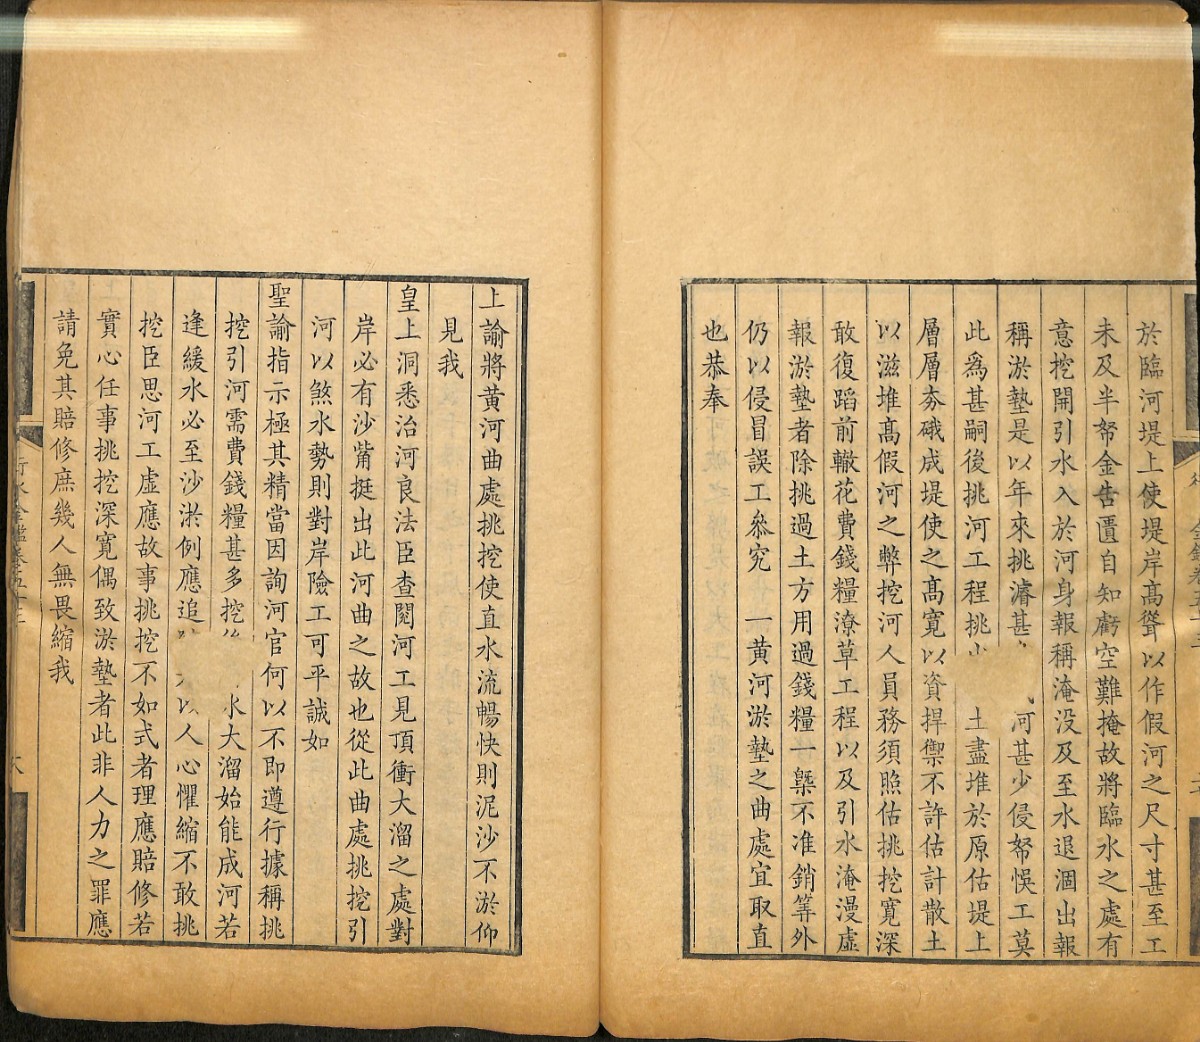 於臨河堤上使堤岸髙聳以作假河之尺寸甚至工
未及半帑金告匱自知虧空難掩故將臨水之處有
意挖開引水入於河身報稱淹没及至水退涸出報
稱淤墊是以年來挑濬甚河甚少侵帑悞工莫
此爲甚嗣後挑河工程挑土盡堆於原估堤上
層層夯硪成堤使之髙寛以資捍禦不許估計散土
以滋堆髙假河之弊挖河人員務須照估挑挖寛深
敢復蹈前轍花費錢糧潦草工程以及引水淹漫虛
報淤墊者除挑過土方用過錢糧一槩不准銷筭外
仍以侵冒誤工叅究 一黄河淤墊之曲處宜取直
也恭奉
上諭將黄河曲處挑挖使直水流暢快則泥沙不淤仰
見我
皇上洞悉治河良法臣查閱河工見頂衝大溜之處對
岸必有沙觜挺出此河曲之故也從此曲處挑挖引
河以煞水勢則對岸險工可平誠如
聖諭指示極其精當因詢河官何以不即遵行據稱挑
挖引河需費錢糧甚多挖水大溜始能成河若
逢緩水必至沙淤例應追以人心懼縮不敢挑
挖臣思河工虛應故事挑挖不如式者理應賠修若
實心任事挑挖深寛偶致淤墊者此非人力之罪應
請免其賠修庶幾人無畏縮我